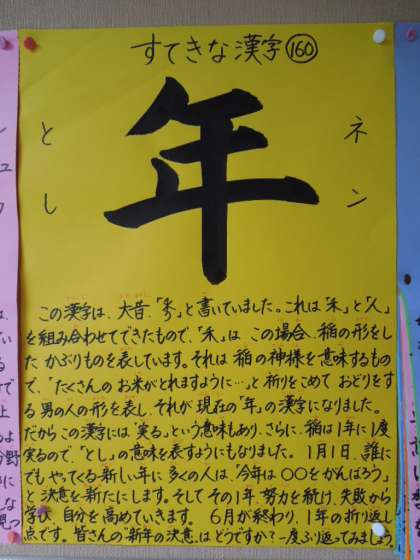 すてきな漢字 160
年
ネン
とし
この漢字は、大昔、「秂」と書いていました。これは「禾」と「人」
を組み合わせてできたもので、「禾」は、この場合、稲の形をし
た かぶりものを表しています。それは 稲の神様を意味するもの
で、「たくさんの お米がとれますように…」と 祈りをこめて おどりをす
る 男の人の形を表し、それが 現在の「年」の漢字になりました。
だから この漢字には「実る」という意味もあり、さらに、稲は1年に1度
実るので「とし」の意味を表すようにもなりました。 1月1日、誰に
でも やってくる 新しい年に 多くの人は、「今年は〇〇をがんばろう」
と 決意を新たにします。そして その1年、努力を続け、失敗から
学び、自分を高めていきます。 6月が終わり、1年の折り返し
点です。皆さんの「新年の決意」は どうですか?一度ふり返ってみましょう